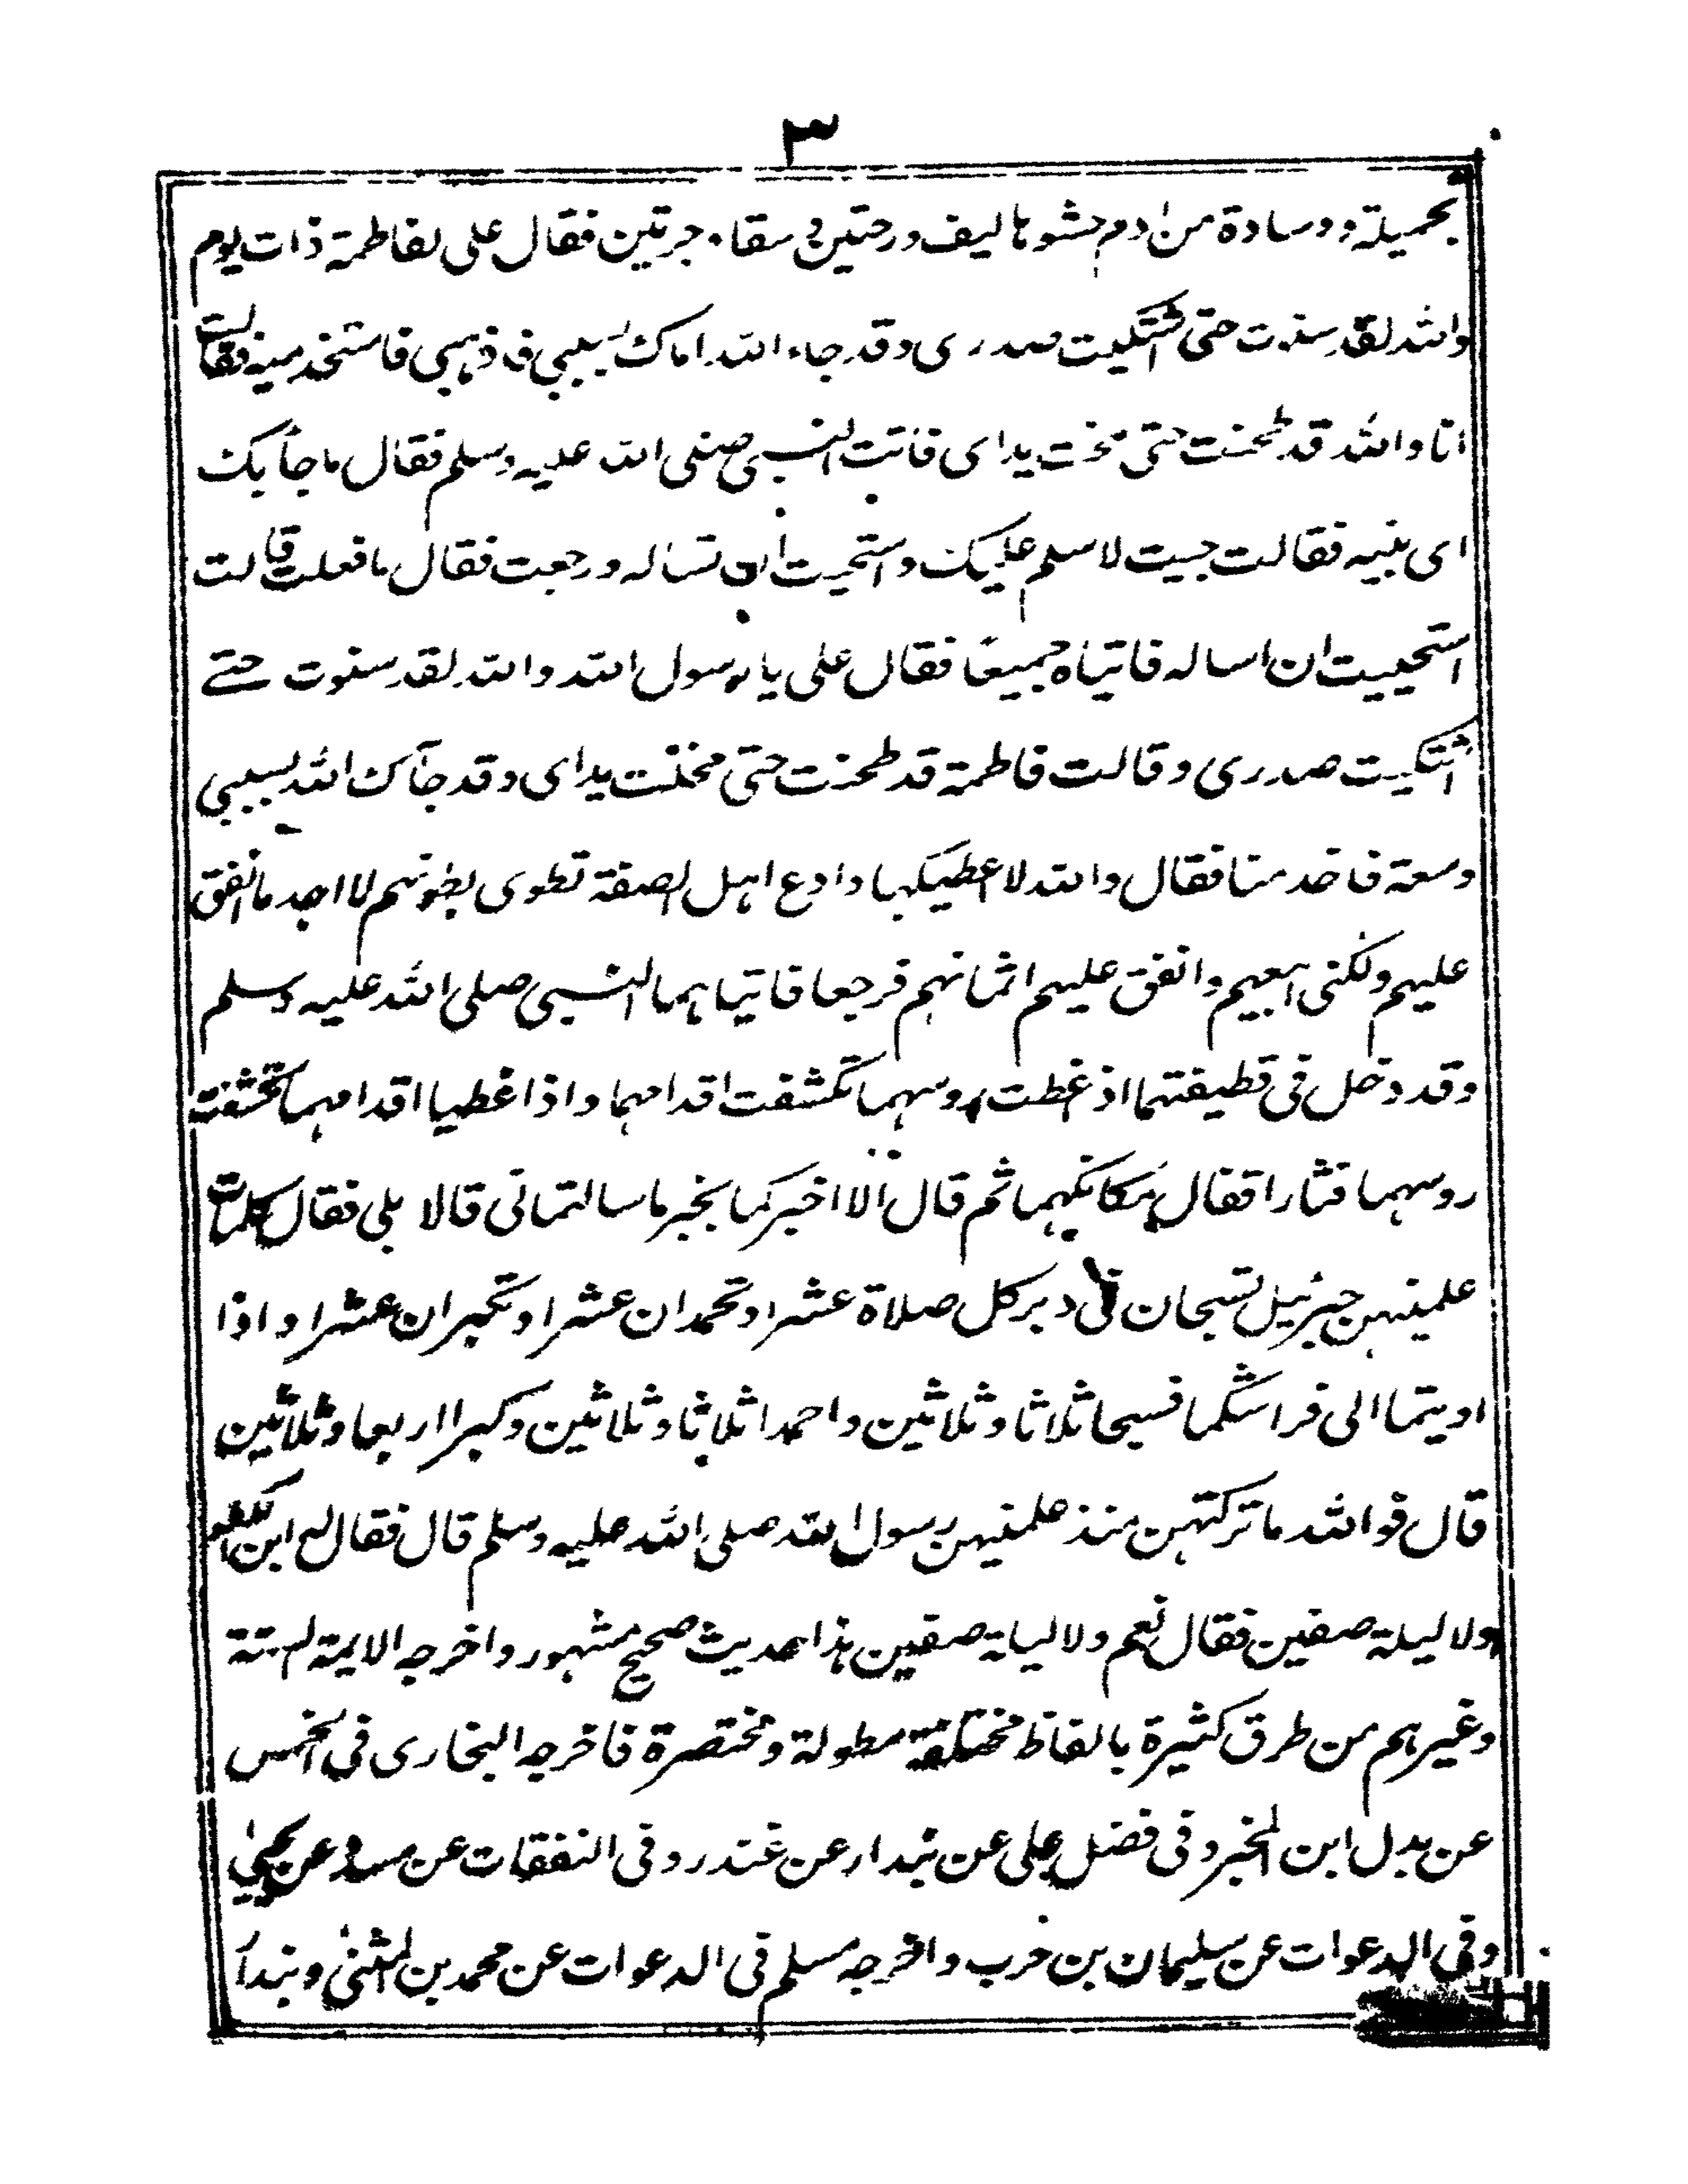 ٣
بخميلة ووسادة من ادم حشوها ليف ورحتين و سقاء وجرتين فقال على لفاطمة ذات يوم
والله لقد سنوت حتى اشتكيت صدرى وقد جاء الله اباك بسبى فاذهبى فاستخدميه فقالت
انا والله قد طحنت حتى مجلت يداى فاتت النبى صلى الله عليه وسلم فقال ماجأ بك
اى بنيه فقالت جيت لاسلم عليك واستحيت ان تساله ورجعت فقال مافعلت قالت
استحييت ان اساله فاتياه جميعا فقال على يا رسول الله والله لقد سنوت حتے
اشتكيت صدرى وقالت فاطمة قد طحنت حتى مجلت يداى وقد جآك الله بسبى
وسعة فاخدمنا فقال والله لا اعطيكها وادع اهل الصفة تطوى بطونهم لا اجد ما انفق
عليهم ولكنى ابيعهم وانفق عليهم اثمانهم فرجعا فاتياهما النبى صلى الله عليه وسلم
وقد دخل فى قطيفتهما اذ غطت روسهما تكشفت اقدامهما واذا غطيا اقدامهما تكشفت
روسهما فثارا فقال مكانكما ثم قال الا اخبركما بخير ما سالتمانى قالا بلى فقال كلمات
علمنيهن جبرئيل تسبحان فى دبر كل صلاة عشرا وتحمدان عشرا وتكبران عشرا واذا
اويتما الى فراشكما فسبحا ثلاثا وثلاثين واحمدا ثلاثا وثلاثين وكبرا اربعا وثلاثين
قال فوالله ماتركتهن منذ علمنيهن رسول الله صلى الله عليه وسلم قال فقال له ابن الكوا
ولا ليلة صفين فقال نعم ولا ليلة صفين هذا حديث صحيح مشهور واخرجه الايمة الستة
وغيرهم من طرق كثيرة بالفاظ مختلفة مطولة ومختصرة فاخرجه البخارى فى الخمس
عن بدل ابن المحبر وفى فضل على عن بندار عن غندر وفى النفقات عن مسدد عن يحيى
وفى الدعوات عن سليمان بن حرب واخرجه مسلم فى الدعوات عن محمد بن المثنى وبندار